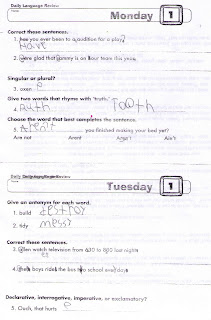 Daily Language Review
Monday 1
Correct these sentences.
1. has you ever been to a audition for a play
Have
2. were glad that sammy is on our team this year
Singular or plural?
3. oxen p
Give two words that rhyme with "truth."
4. Ruth tooth
Choose the word that best completes the sentence.
5. Aren't you finished making your bed yet?
Are not Arent Aren't
Daily Language Review
Tuesday 1
Give an antonym for each word.
1. build destroy
2. tidy messy
Correct these sentences.
3. watch television from 6:30 to 8:00 last night
4. boys rides the bus to school every days
Declarative, interrogative, imperative, or exclamatory?
5. Ouch, that hurts e